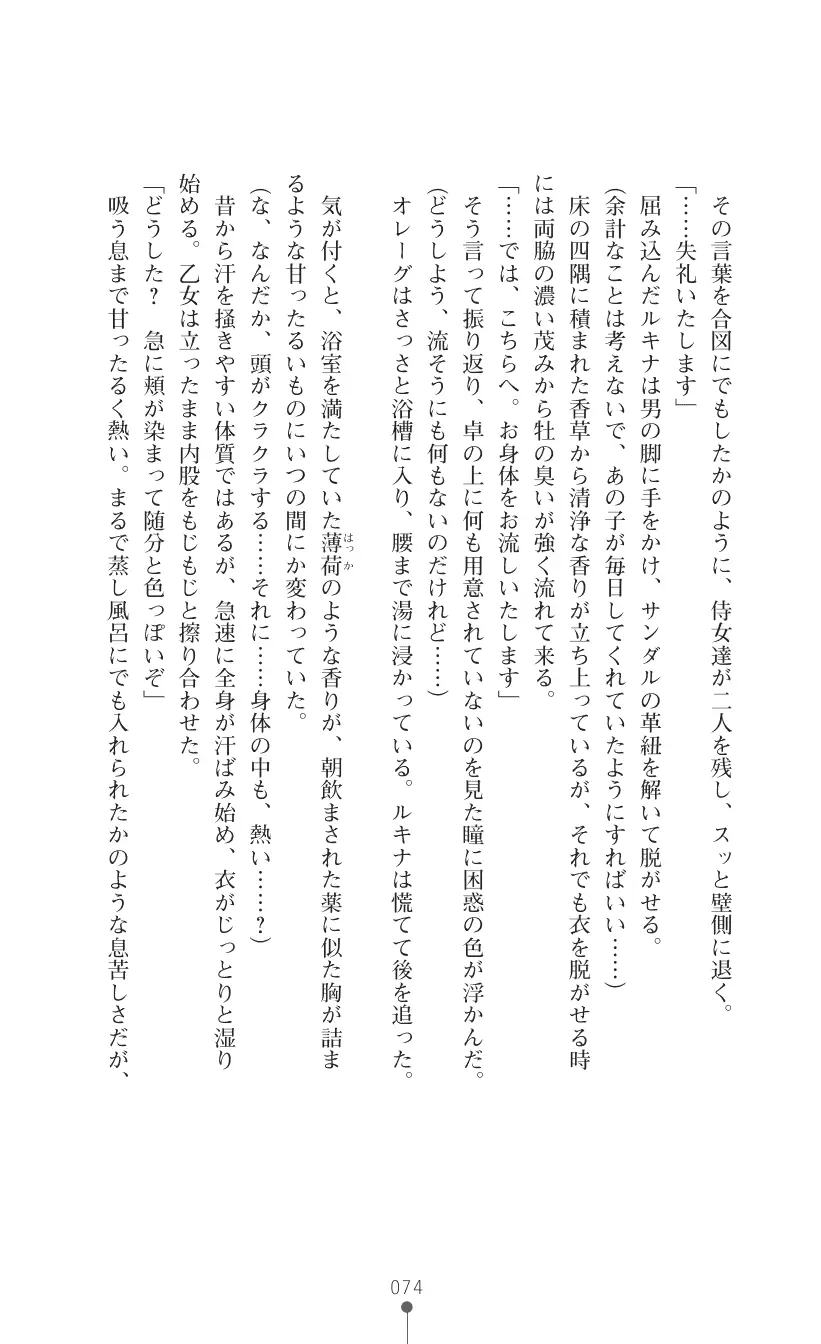 その言葉を合図にでもしたかのように、侍女達が二人を残し、スッと壁側に退く。
「……失礼いたします」
屈み込んだルキナは男の脚に手をかけ、サンダルの革紐を解いて脱がせる。
(余計なことは考えないで、あの子が毎日してくれていたようにすればいい……)
床の四隅に積まれた香草から清浄な香りが立ち上っているが、それでも衣を脱がせる時
には両脇の濃い茂みから牡の臭いが強く流れて来る。
「……では、こちらへ。お身体をお流しいたします」
そう言って振り返り、卓の上に何も用意されていないのを見た瞳に困惑の色が浮かんだ。
(どうしよう、流そうにも何もないのだけれど……)
オレーグはさっさと浴槽に入り、腰まで湯に浸かっている。ルキナは慌てて後を追った。
気が付くと、浴室を満たしていた薄荷のような香りが、朝飲まされた薬に似た胸が詰ま
はっか
るような甘ったるいものにいつの間にか変わっていた。
(な、なんだか、頭がクラクラする……それに……身体の中も、熱い……?)
昔から汗を掻きやすい体質ではあるが、急速に全身が汗ばみ始め、衣がじっとりと湿り
始める。乙女は立ったまま内股をもじもじと擦り合わせた。
「どうした? 急に頬が染まって随分と色っぽいぞ」
吸う息まで甘ったるく熱い。まるで蒸し風呂にでも入れられたかのような息苦しさだが、
074